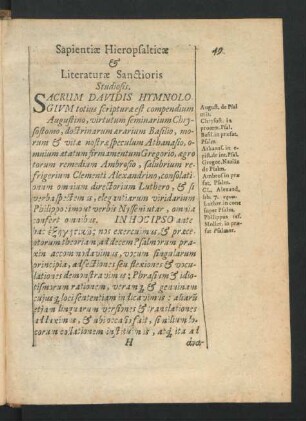 Sapientiæ Hieropsalticæ
49.
&
Literaturæ Sanctioris
Studiosis,
SACRUM DAVIDIS HYMNOLO
GIUM totius scripturæ est compendium
Augustino, virtutum seminarium Chry-
sostomo, doctrinarum ærarium Basilio, mo-
rum & vitæ nostræ speculum Athanasio, o-
mnium ætatum firmamentum Gregorio, ægro
torum remedium Ambrosio, salubrium re-
frigerium Clementi Alexandrino, consolati
onum omnium directorium Luthero, & si
verba spectem, elegantiarum viridarium
Philippo: imo ut verbis Nysseni utar, omnia
confert omnibus. IN HOC IPSO ante
hac nos exercuimus, & præce-
ptorum theoriam, ad decem Psalmorum praxin
accommodavimus, vocum singularum
principia, adfectiones seu flexiones & voca-
lationes demonstravimus; Phrasium & idio-
tismorum rationem, veramq; & genuinam
cujusq; loci sententiam indicavimus: aliarū e-
tiam linguarum versiones & translationes
adduximus, & ubi occasio fuit, similium lo-
corum collationem instituimus, atq; ita ad
H
August. de Psal
mis.
Chrysost. in
proœm. Psal.
Basil. in præfat.
Psalm.
Athanas. in e-
pist. de int. Psal.
Gregor. Homil. 1
de Psalm.
Ambros. in præ-
fat. Psalm.
CL. Alexand.
lib. 7.
Luther. in com̄
super Psalm.
Philippus
in præ-
fat. Psalmor.